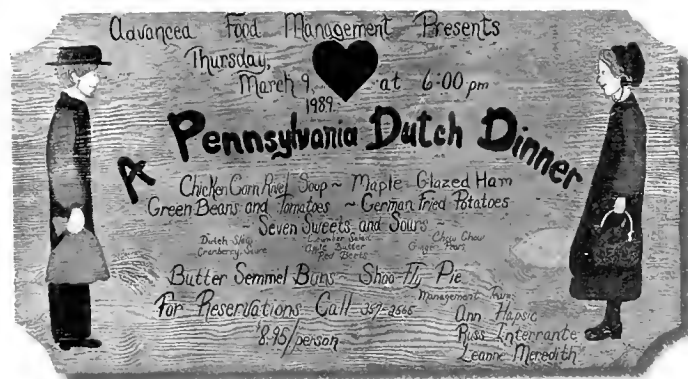 Advanced Food Management Presents
Thursday,
March 9, at 6:00 pm
1989
A Pennsylvania Dutch Dinner
Chicken Corn Rivel Soup ~ Maple Glazed Ham
Green Beans and Tomatoes ~ German Fried Potatoes
~ Seven Sweets and Sours ~
Dutch Slaw Cucumber Salad Chow Chow
Cranberry Apple Butter Ginger Pears
Red Beets
Butter Semmel Buns ~ Shoo-Fly Pie
For Reservations Call 357-2565
$8.95/person
Management Team:
Ann Hapsic
Russ Interrante
Leanne Meredith